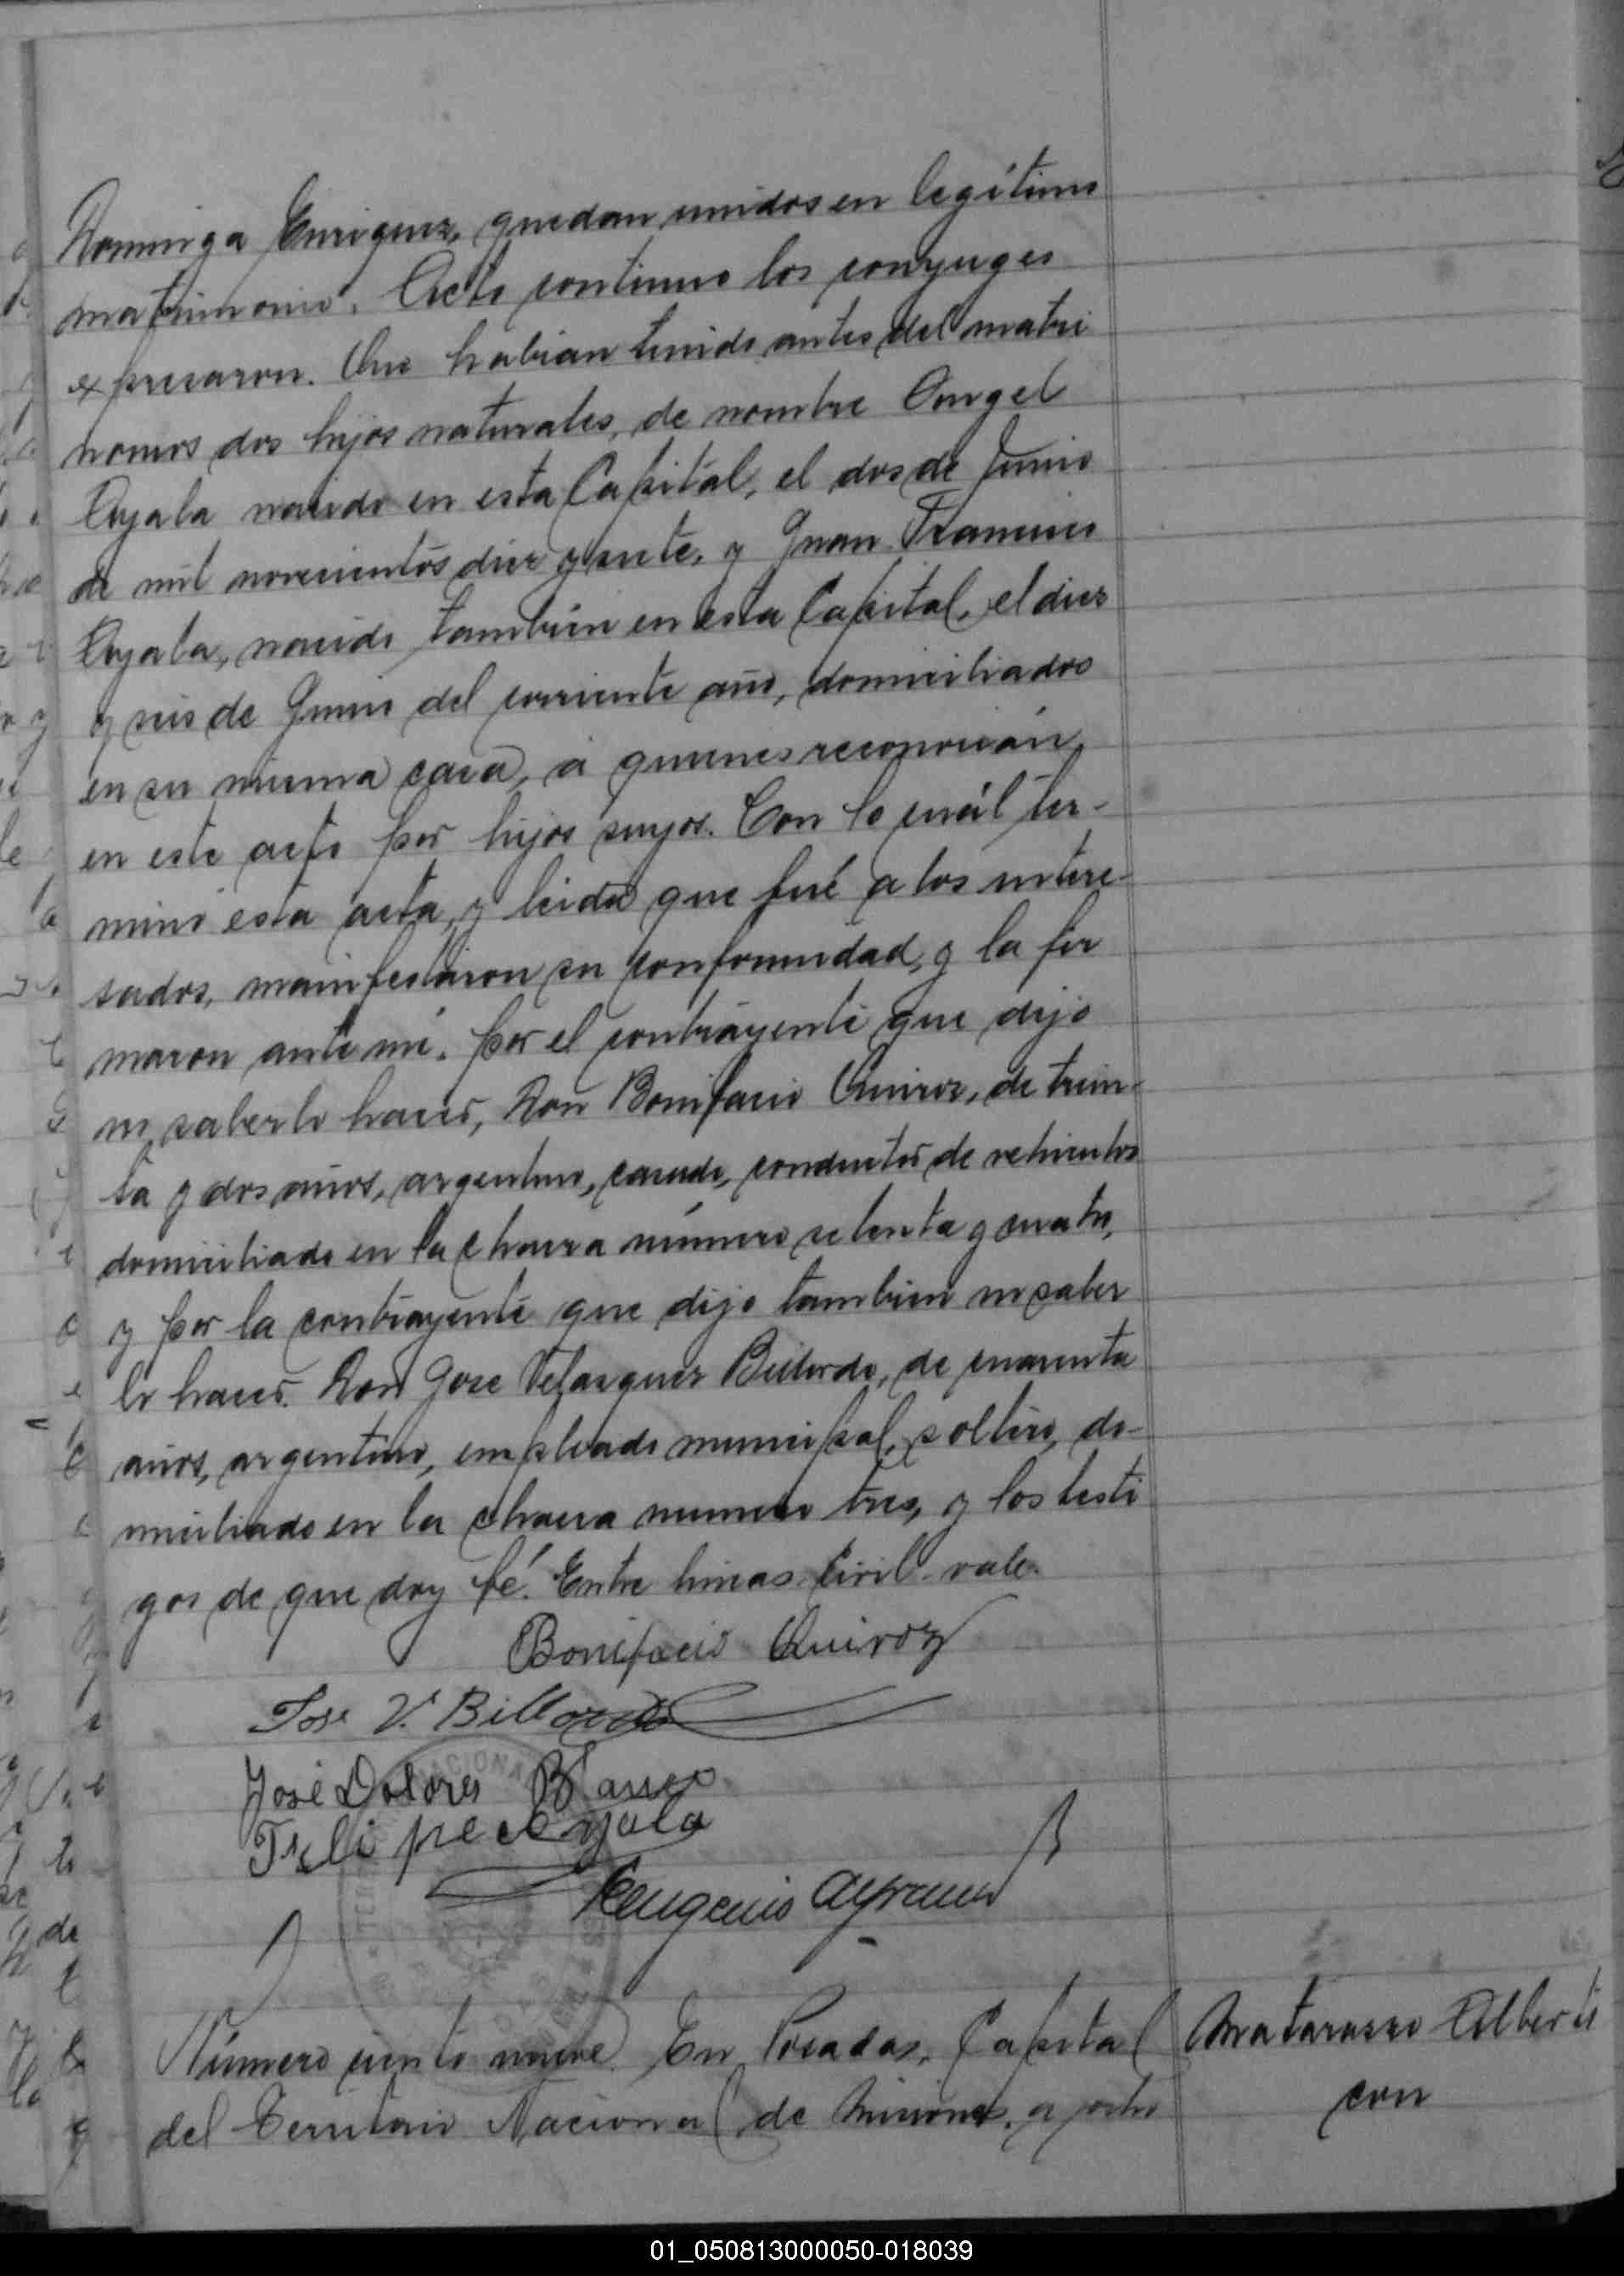 Dominga Enriquez, quedan unidos en legítimo
matrimonio. Acto continuo los conyuges
expresaron. Que habian tenido antes del matri
monios dos hijos naturales, de nombre Angel
Ayala nacido en esta Capital, el dos de Junio
de mil novecientos diez y siete, y Juan Francisco
Ayala, nacido también en esta Capital, el diez
y seis de Junio del corriente año, domiciliados
en su misma casa, á quienes reconocián
en este acto por hijos suyos. Con lo cuál ter-
minó esta acta, y leida que fué a los intere-
sados, manifestaron su conformidad, y la fir
maron ante mí. por el contrayente que dijo
no saberlo hacer, Don Bonifacio Quiroz, de trein-
ta y dos años, argentino, casado, conductor de vehiculos
domiciliado en la chacra número setenta y cuatro,
y por la contrayente que dijo tambien no saber
lo hacer. Don Jose Velasquez Billordo, de cuarenta
años, argentino, empleado municipal, soltero, do-
miciliado en la chacra numero tres, y los testi
gos de que doy fé. Entre lineas civil vale.
Bonifacio Quiroz
Jose V. Billordo
José Dolores Blanco
Felipe Ayala
Eugenio
Número ciento nueve En Posadas, Capital
del Territorio Nacional de Misiones, a ocho
Matarasso Alberto
con
01_050813000050-018039